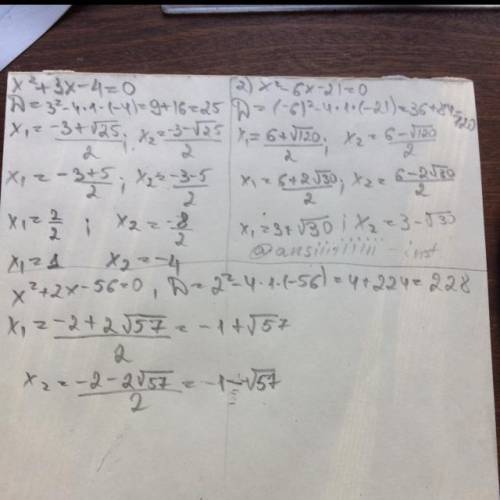 x²+3x-4=0
D=3²-4·1·(-4)=9+16=25
x₁=(-3+√25)/2; x₂=(-3-√25)/2
x₁=(-3+5)/2; x₂=(-3-5)/2
x₁=2/2; x₂=-8/2
x₁=1 x₂=-4
2) x²-6x-21=0
D=(-6)²-4·1·(-21)=36+84=120
x₁=(6+√120)/2; x₂=(6-√120)/2
x₁=(6+2√30)/2; x₂=(6-2√30)/2
x₁=3+√30; x₂=3-√30
x²+2x-56=0, D=2²-4·1·(-56)=4+224=228
x₁=(-2+2√57)/2=-1+√57
x₂=(-2-2√57)/2=-1-√57